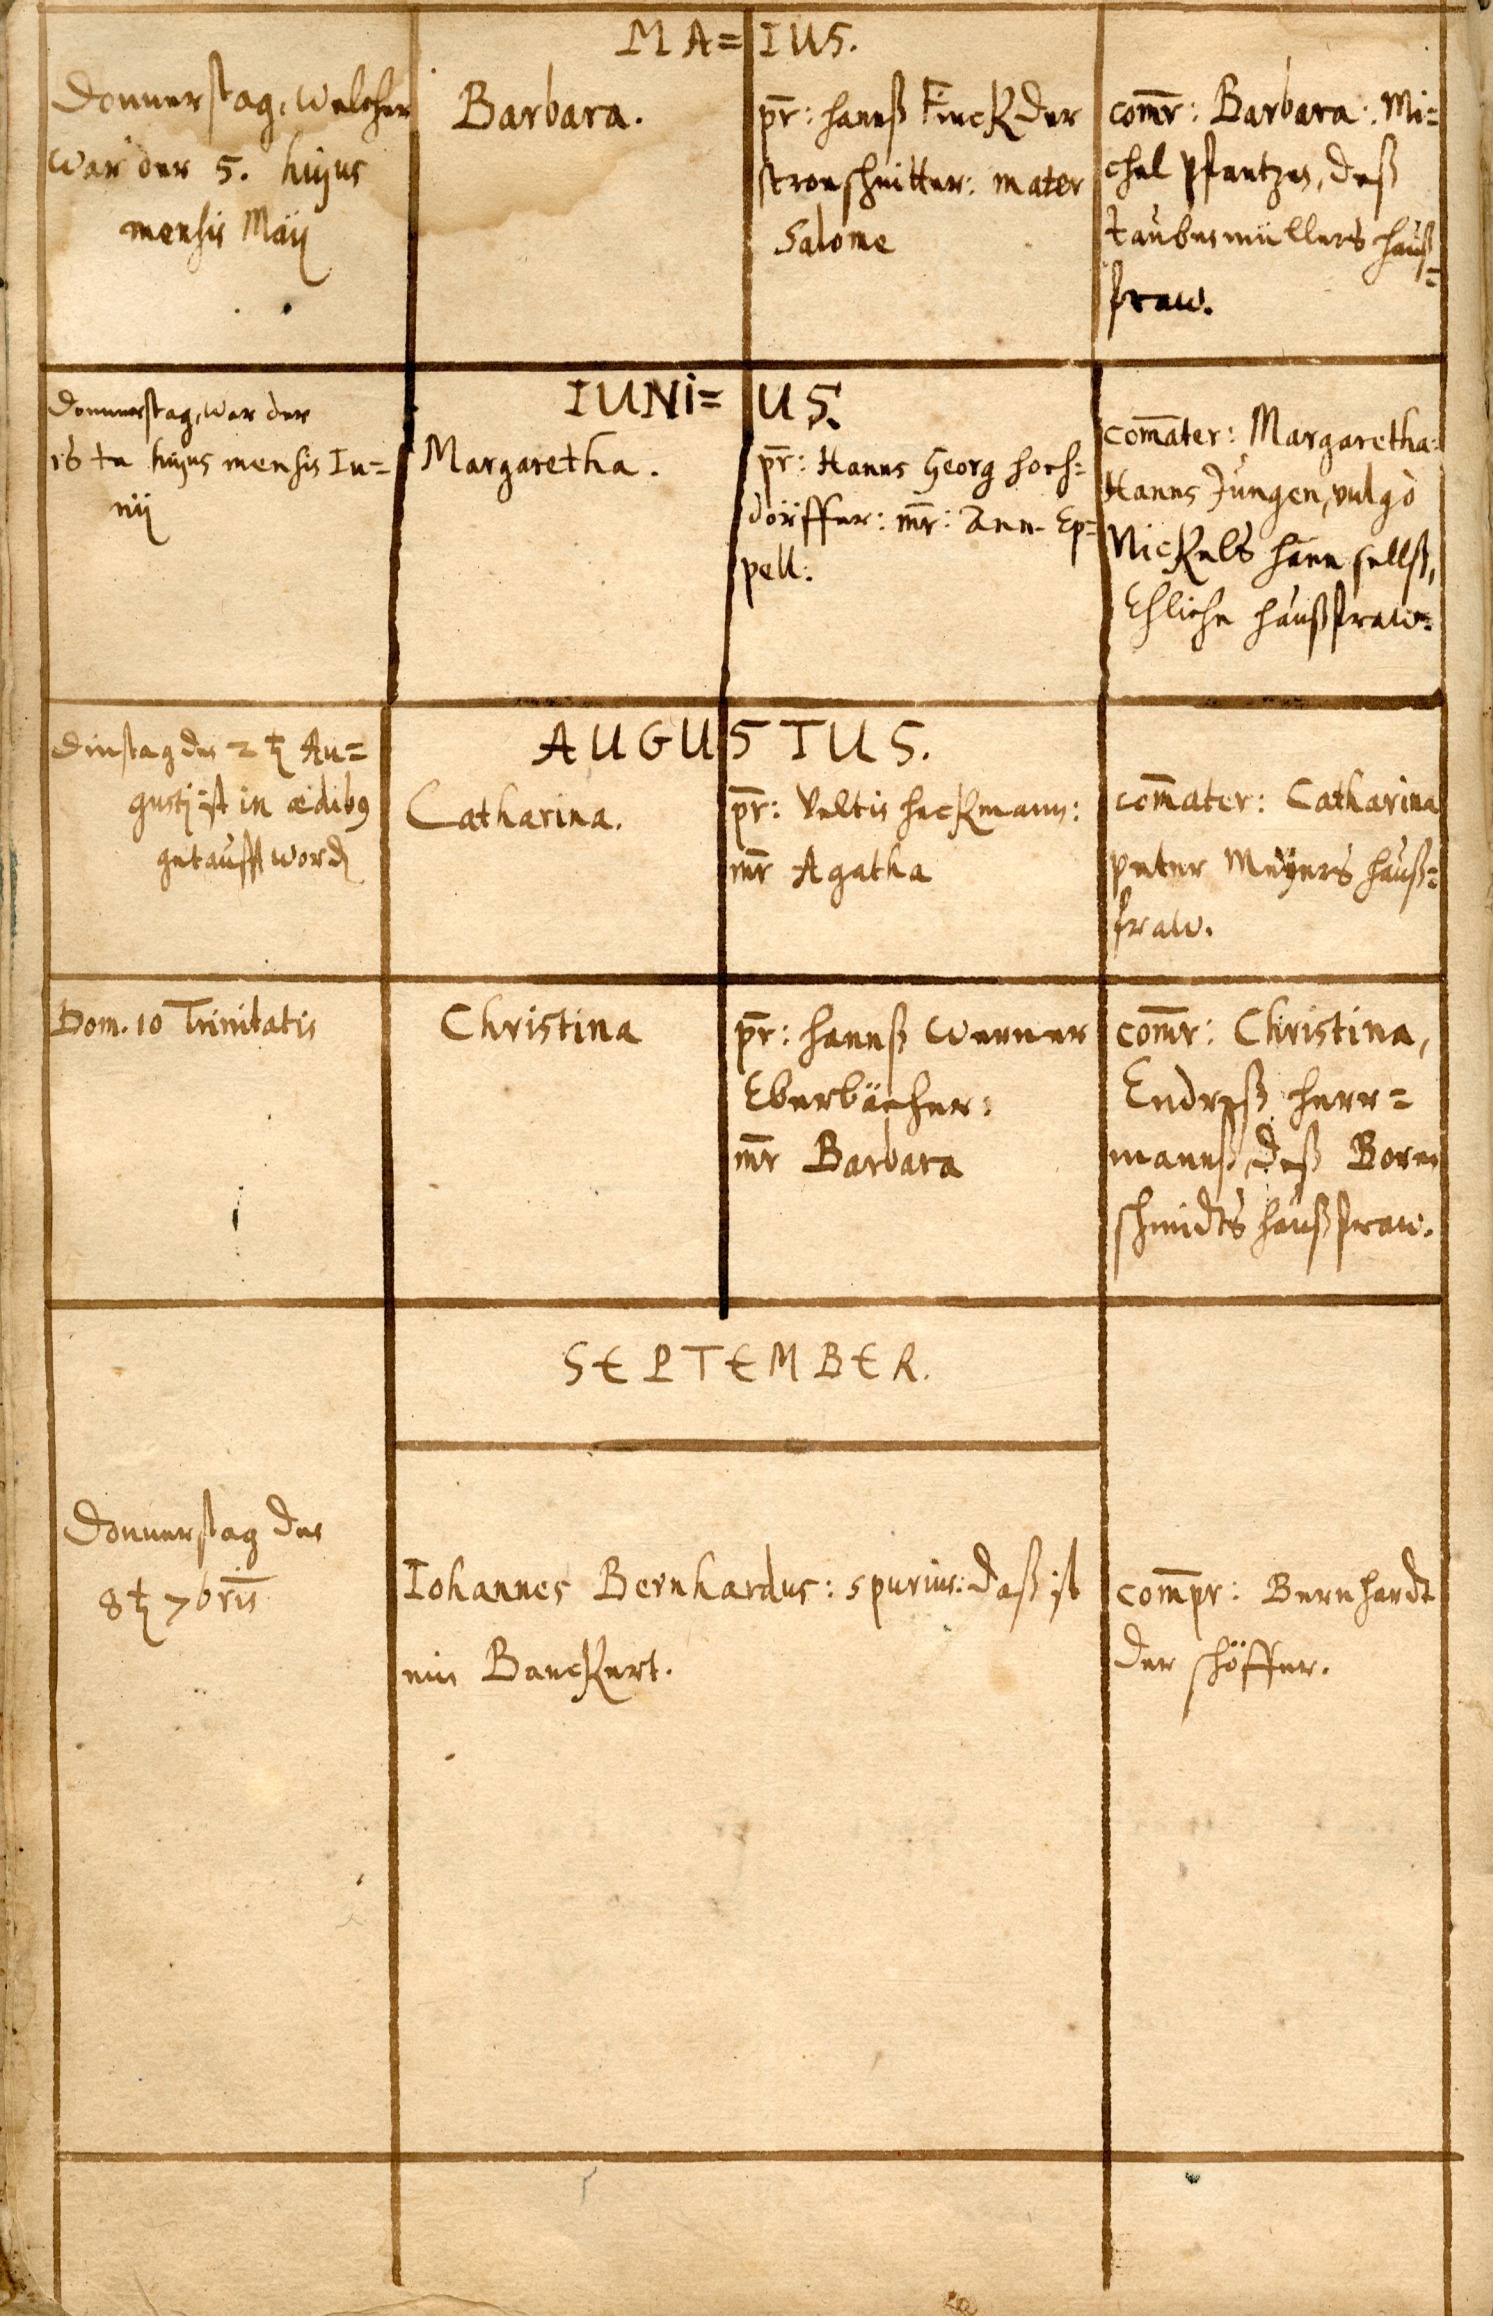 MA=IUS.
Donnerstag, welcher
war der 5. hujus
mensis Maÿ
Barbara.
pr̄: hanß Finck der
stroschnitter: mater
Salome
com̄r: Barbara: Mi=
chel Pfantzen, deß
taubenmüllers hauß=
fraw.
IUNI=US.
Donnerstag, war der
hujus mensis Iu=
nÿ
Margaretha.
pr̄: Hanns Georg Hoch=
dörffer: mr̄: Ann Ep=
pell:
com̄ater: Margaretha:
Hanns Jungen, vulgò
Nickels
Ehliche haußfraw.
AUGUSTUS.
Dinstag den 2t Au=
gustj ist in ædibq
getaufft word
Catharina.
pr̄: Veltin heckmann:
mr̄ Agatha
com̄ater: Catharina
peter Meÿers hauß=
fraw.
Dom. 10 Trinitatis
Christina
pr̄: hanß Werner
Eberbächer:
mr̄ Barbara
com̄r: Christina,
Endreß herr=
manns, deß
schmidts haußfraw.
SEPTEMBER.
Donnerstag den
8t 7bris
Iohannes Bernhardus: spurius: daß ist
ein Banckert.
com̄pr: Bernhardt
der schöffer.